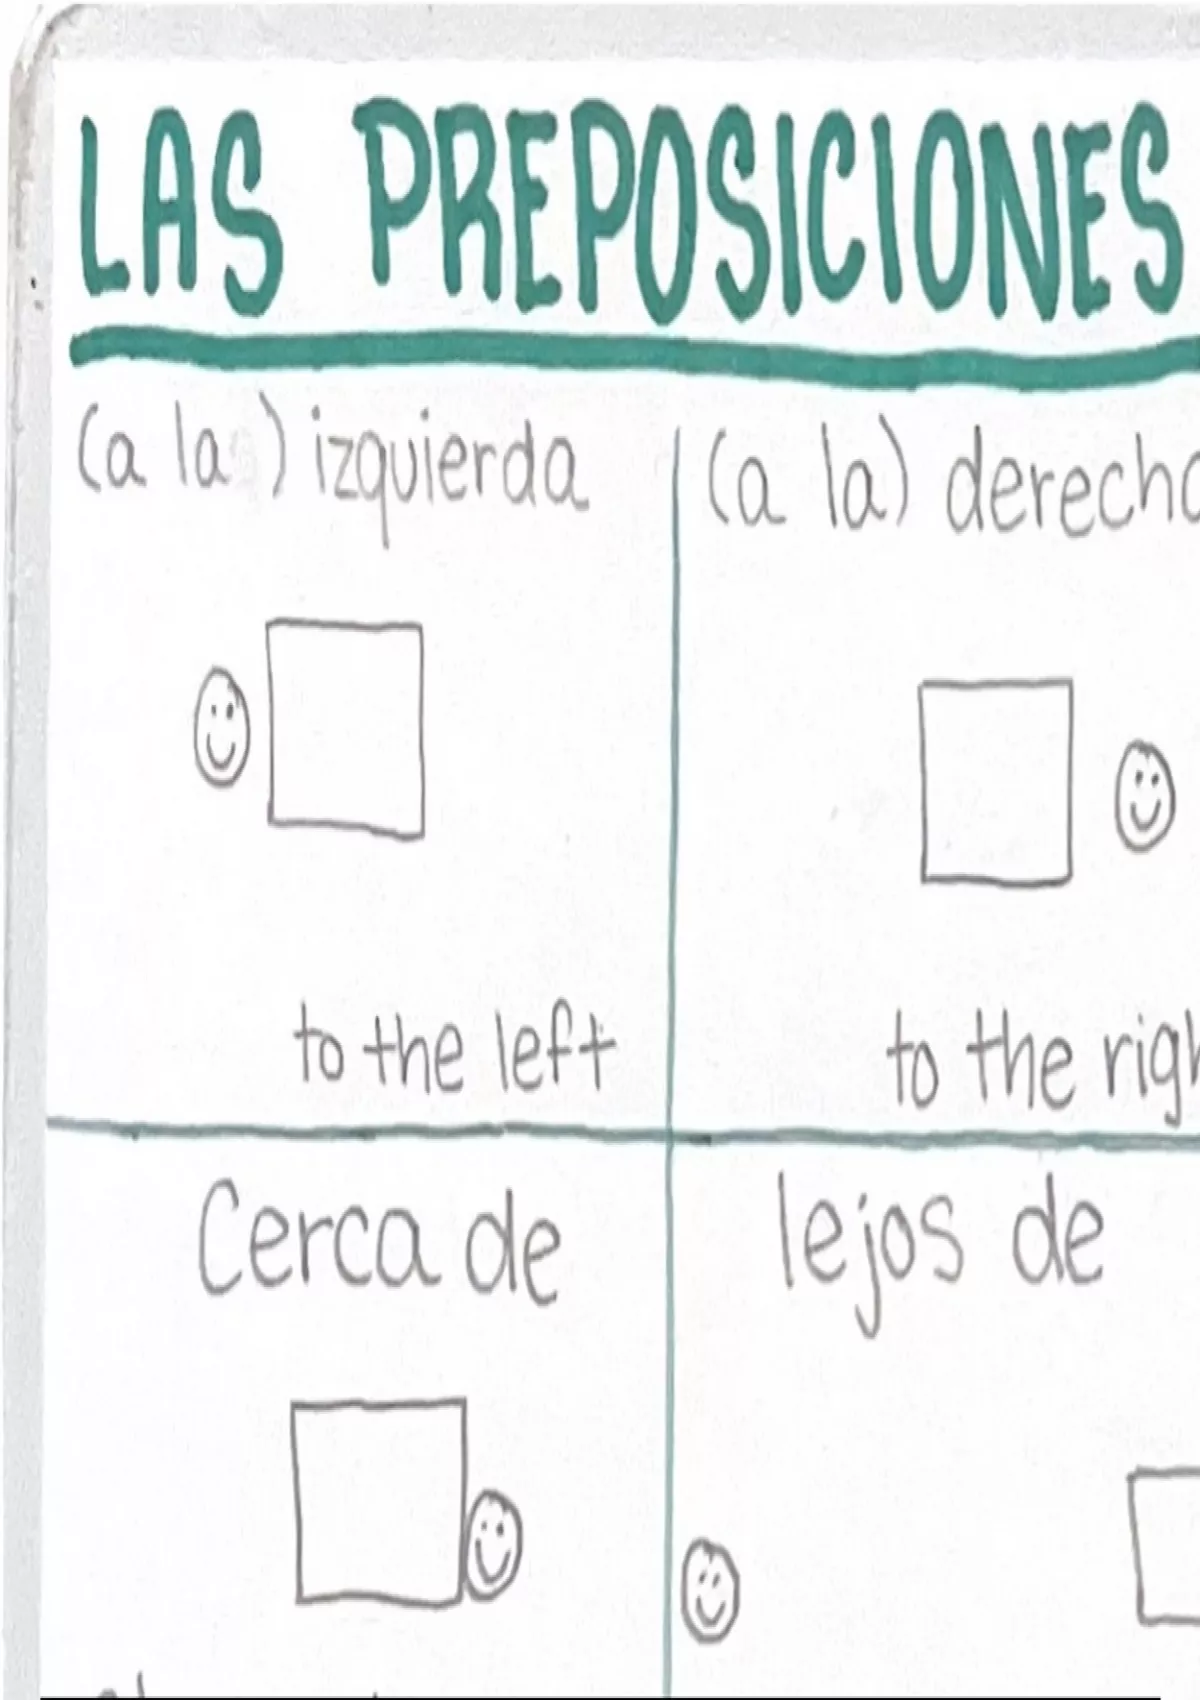 LAS PREPOSICIONES
(a la ) izquierda
(a la) derecha
to the left
to the
Cerca de
lejos de